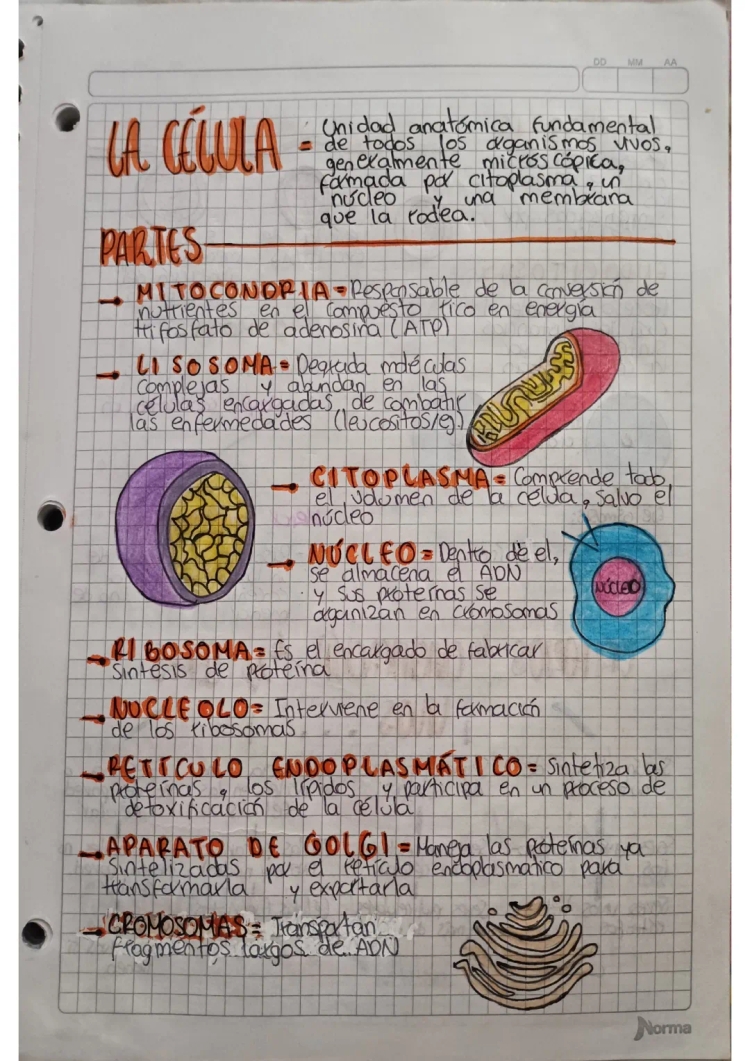 DD MM AA
LA CÉLULA = Unidad anatómica fundamental
de todos los organismos vivos,
generalmente microscópica,
formada por citoplasma, un
núcleo y una membrana
que la rodea.
PARTES
→ MITOCONDRIA = Responsable de la conversión de
nutrientes en el compuesto rico en energía
trifosfato de adenosina (ATP)
→ LISOSOMA = Degrada moléculas
complejas y abundan en las
células encargadas de combatir
las enfermedades (leucositos/eg)
→ CITOPLASMA = Comprende todo
el volumen de la célula, salvo el
núcleo
→ NÚCLEO = Dentro de el,
se almacena el ADN
y sus proteínas se
organizan en cromosomas
NÚCLEO
→ RIBOSOMA = Es el encargado de fabricar
sintesis de proteína
→ NUCLEOLO = Interviene en la formación
de los ribosomas
→ RETÍCULO ENDOPLASMÁTICO = Sintetiza las
proteínas, los lípidos y participa en un proceso de
detoxificación de la célula
→ APARATO DE GOLGI = Maneja las proteínas ya
sintelizadas por el retículo endoplasmático para
transformarla y exportarla
→ CROMOSOMAS = Transportan
fragmentos largos de ADN
Norma